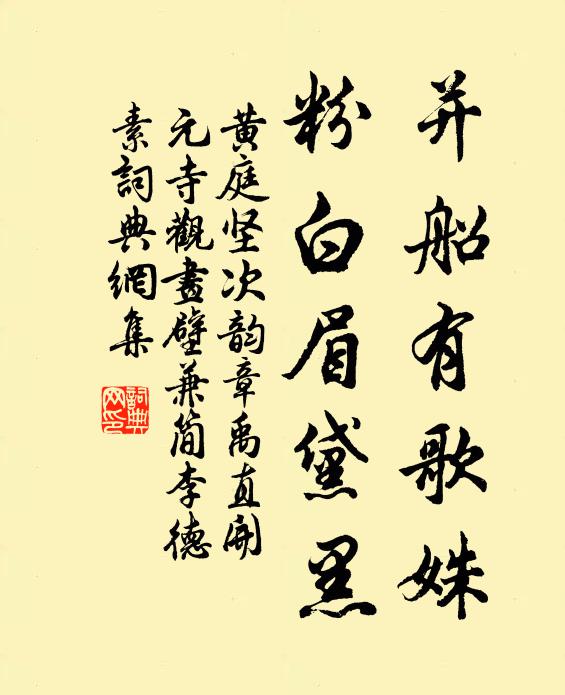 并船有歌姝
粉白眉黛黑
黄庭坚次韵章禹直開
元寺觀畫壁兼简李德
素詞典網集
詞典
网印